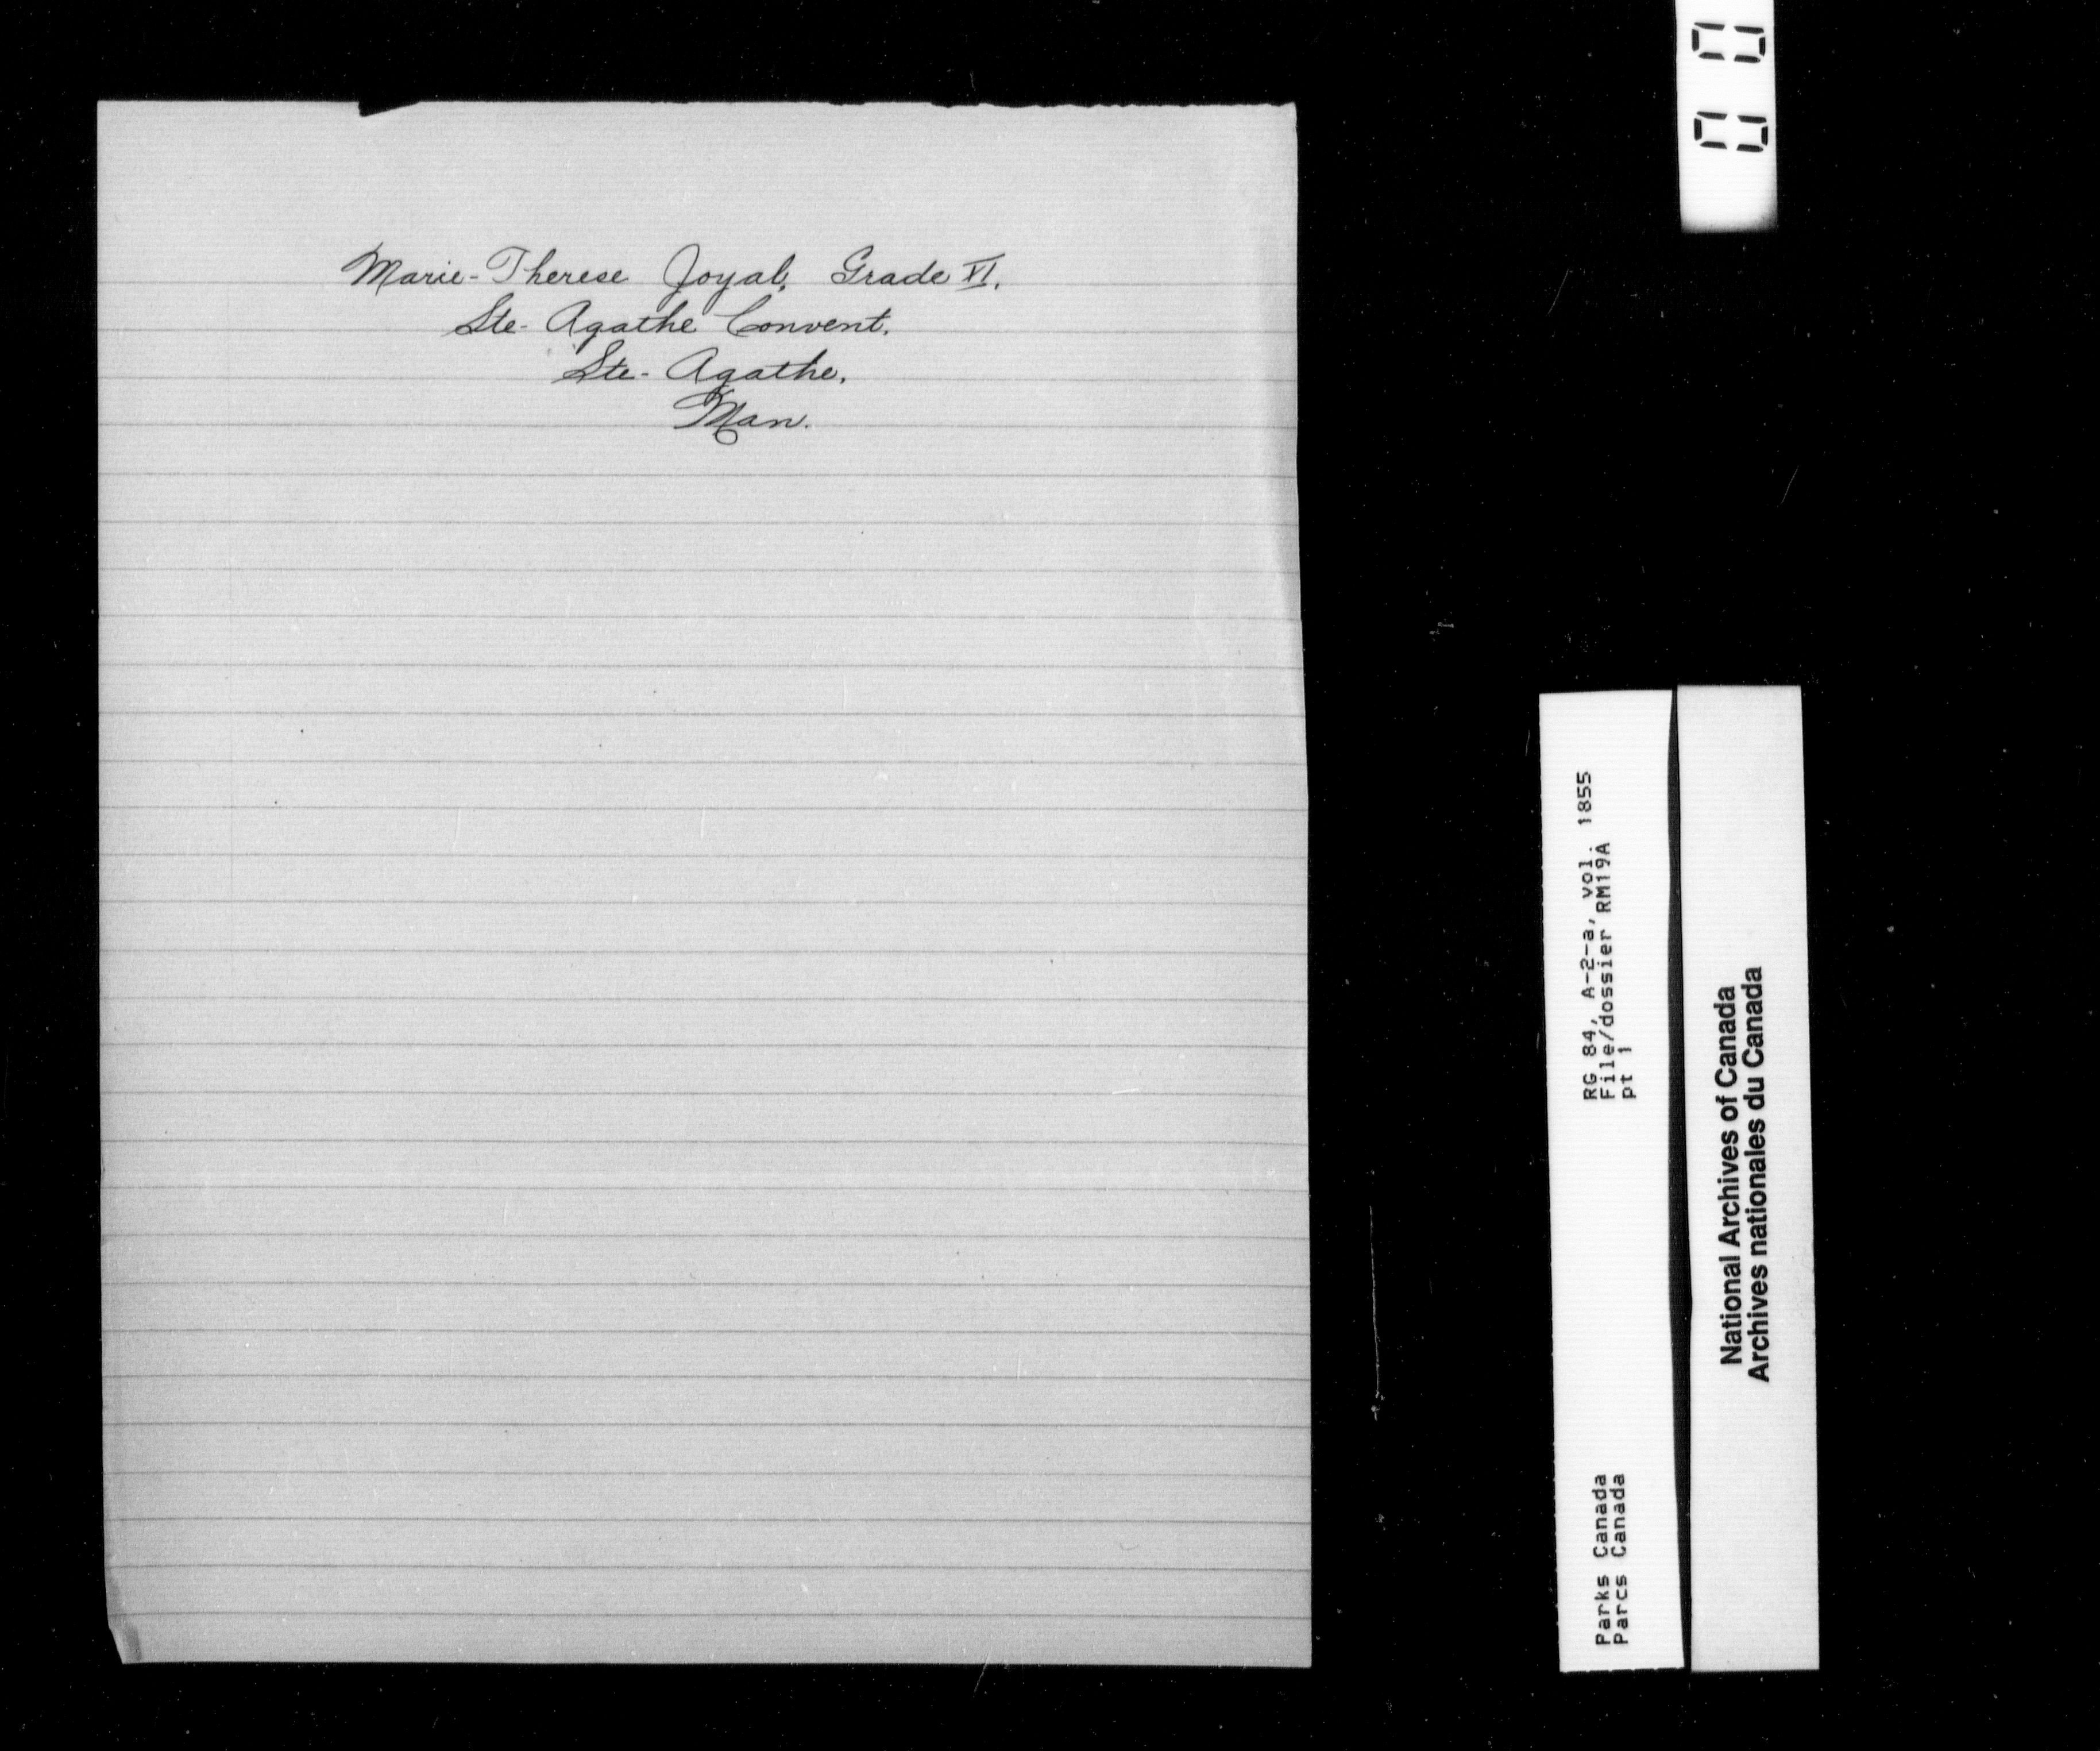 Marie-Therese Joyal, Grade VI.
Ste- Agathe Convent.
Ste- Agathe,
Man.
RG 84, A-2-a, vol. 1855
File/dossier RM19A
pt 1
Parks Canada
Parcs Canada
National Archives of Canada
Archives nationales du Canada